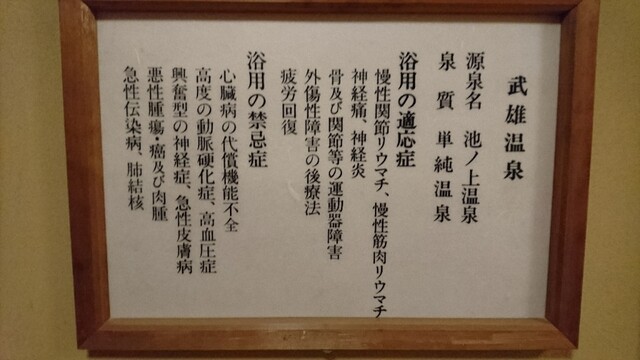 武雄温泉
源泉名 池ノ上温泉
泉質 単純温泉
浴用の適応症
慢性関節リウマチ、慢性筋肉リウマチ
神経痛、神経炎
骨及び関節等の運動器障害
外傷性障害の後療法
疲労回復
浴用の禁忌症
心臓病の代償機能不全
高度の動脈硬化症、高血圧症
興奮型の神経症、急性皮膚病
悪性腫瘍・癌及び肉腫
急性伝染病、肺結核